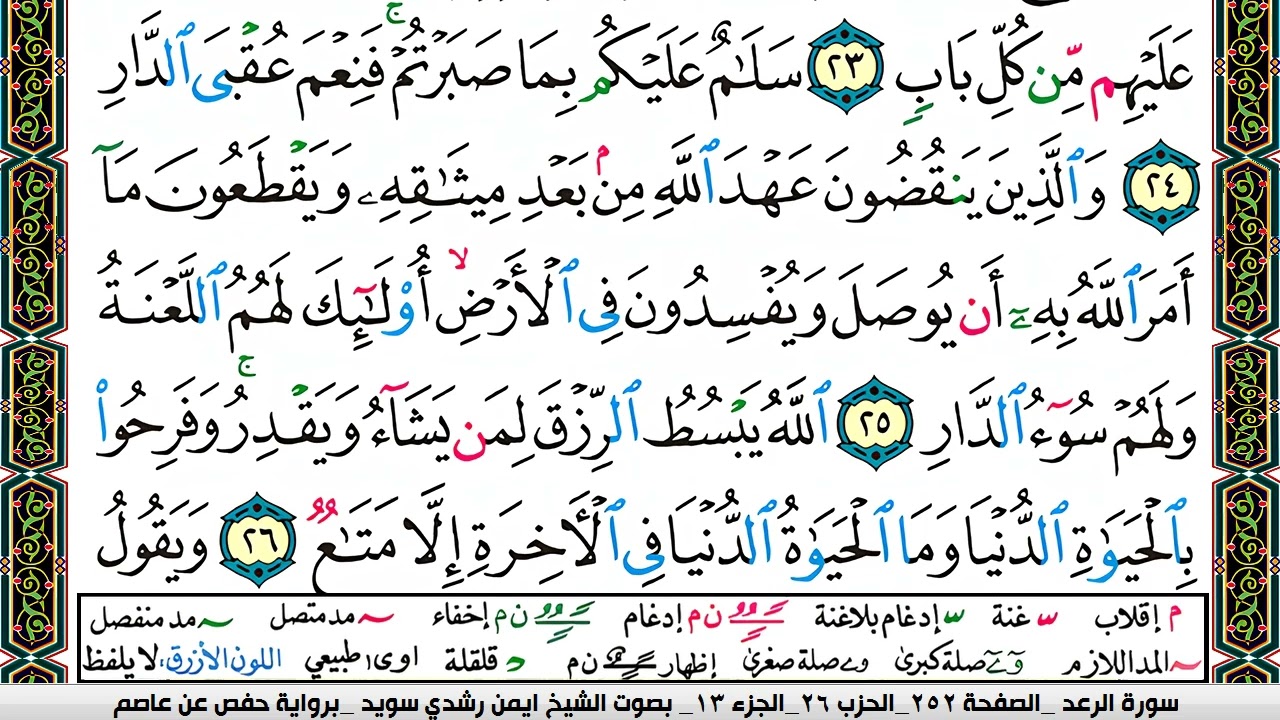 عَلَيْهِم مِّن كُلِّ بَابٍ ٢٣ سَلَـٰمٌ عَلَيْكُم بِمَا صَبَرْتُمْ ۚ فَنِعْمَ عُقْبَى ٱلدَّارِ
٢٤ وَٱلَّذِينَ يَنقُضُونَ عَهْدَ ٱللَّهِ مِنۢ بَعْدِ مِيثَـٰقِهِۦ وَيَقْطَعُونَ مَآ
أَمَرَ ٱللَّهُ بِهِۦٓ أَن يُوصَلَ وَيُفْسِدُونَ فِى ٱلْأَرْضِ ۙ أُو۟لَـٰٓئِكَ لَهُمُ ٱللَّعْنَةُ
وَلَهُمْ سُوٓءُ ٱلدَّارِ ٢٥ ٱللَّهُ يَبْسُطُ ٱلرِّزْقَ لِمَن يَشَآءُ وَيَقْدِرُ ۚ وَفَرِحُوا۟
بِٱلْحَيَوٰةِ ٱلدُّنْيَا وَمَا ٱلْحَيَوٰةُ ٱلدُّنْيَا فِى ٱلْـَٔاخِرَةِ إِلَّا مَتَـٰعٌ ٢٦ وَيَقُولُ
م إقلاب غنة إدغام بلاغنة ن م إدغام ن م إخفاء مد متصل مد منفصل
المد اللازم صلة كبرىٰ صلة صغرىٰ إظهار ن م قلقلة اوى ا طبيعي اللون الأزرق، لا يلفظ
سورة الرعد _الصفحة ٢٥٢_الحزب ٢٦_الجزء ١٣_ بصوت الشيخ ايمن رشدي سويد _برواية حفص عن عاصم